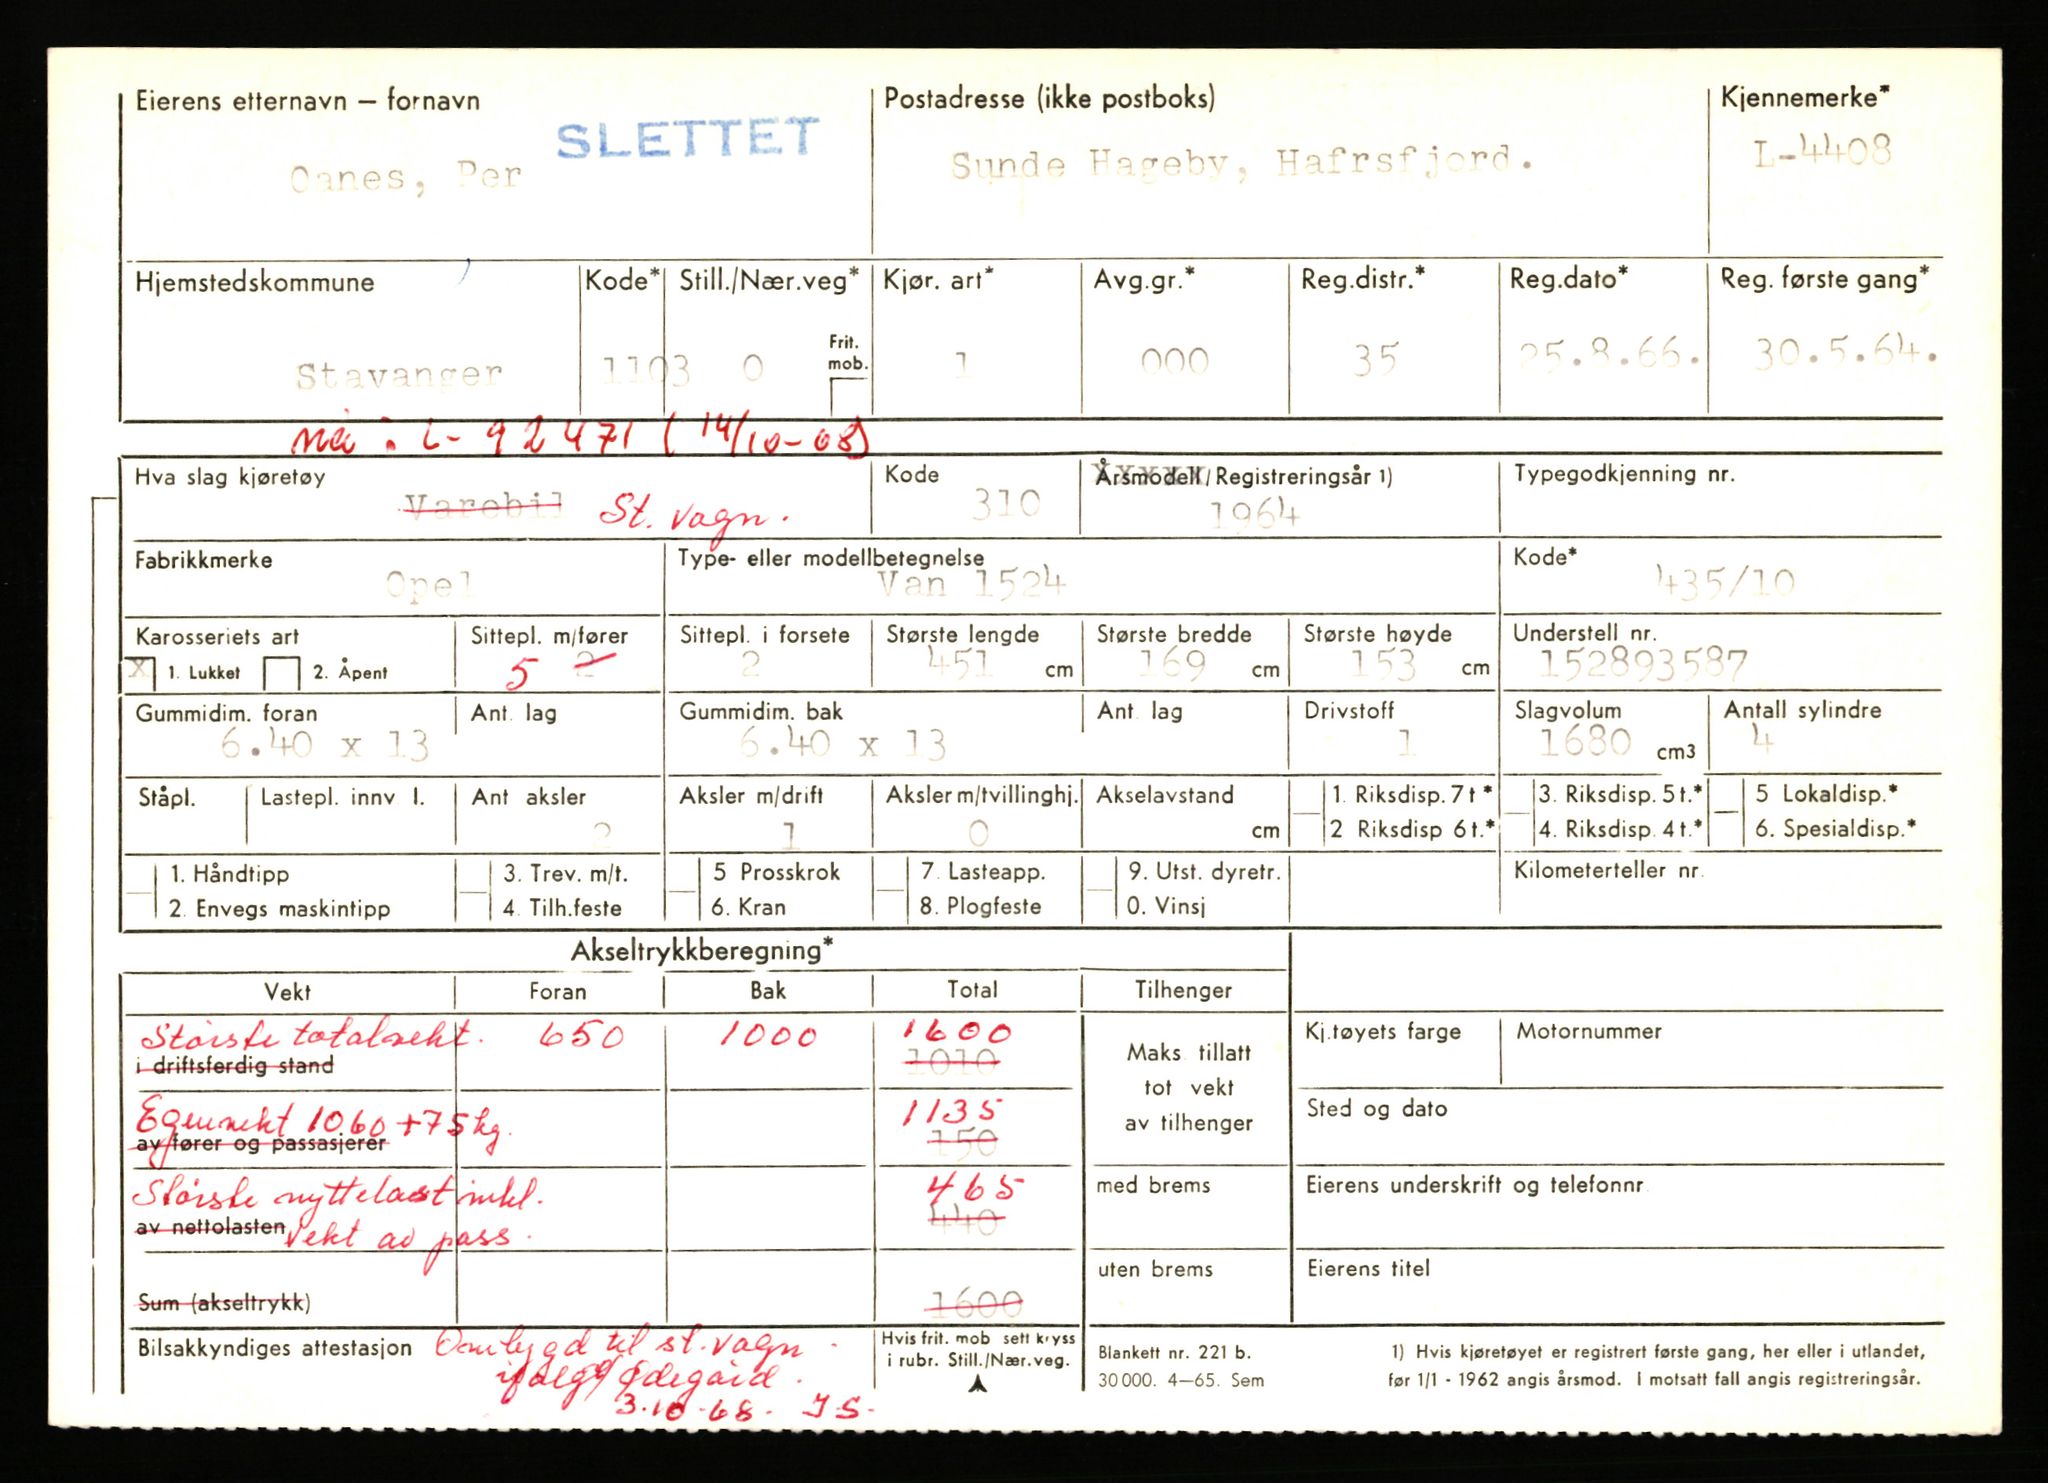 Eierens etternavn – fornavn
Postadresse (ikke postboks)
Kjennemerke*
SLETTET
Oanes, Per
Sunde Hageby, Hafrsfjord.
L-4408
Hjemstedskommune
Kode*
Still./Nær.veg*
Kjør. art*
Avg.gr.*
Reg.distr.*
Reg.dato*
Reg. første gang*
Frit. mob.
Stavanger
1103
0
1
000
35
25.8.66.
30.5.64.
nå : L- 92471 (14/10-68)
Hva slag kjøretøy
Kode
Årsmodell/Registreringsår 1)
Typegodkjenning nr.
Varebil St. vagn.
310
1964
Fabrikkmerke
Type- eller modellbetegnelse
Kode*
Opel
Van 1524
435/10
Karosseriets art
Sittepl. m/fører
Sittepl. i forsete
Største lengde
Største bredde
Største høyde
Understell nr.
X 1. Lukket 2. Åpent
5 2
2
451 cm
169 cm
153 cm
152893587
Gummidim. foran
Ant. lag
Gummidim. bak
Ant. lag
Drivstoff
Slagvolum
Antall sylindre
6.40 x 13
6.40 x 13
1
1680 cm3
4
Ståpl.
Lastepl. innv l.
Ant aksler
Aksler m/drift
Aksler m/tvillinghj.
Akselavstand
1. Riksdisp. 7 t*
3. Riksdisp. 5 t.*
5 Lokaldisp.*
2
1
0
cm
2 Riksdisp 6 t.*
4. Riksdisp. 4 t.*
6. Spesialdisp.*
1. Håndtipp
3. Trev. m/t.
5 Prosskrok
7. Lasteapp.
9. Utst. dyretr.
Kilometerteller nr.
2. Envegs maskintipp
4. Tilh.feste
6. Kran
8. Plogfeste
0. Vinsj
Akseltrykkberegning*
Vekt
Foran
Bak
Total
Tilhenger
Største totalvekt. 650 1000 1600
i driftsferdig stand 1010
Maks tillatt
tot vekt
av tilhenger
Kj.tøyets farge
Motornummer
Egenvekt 1060 + 75 kg. 1135
av fører og passasjerer 150
Sted og dato
Største nyttelast inkl. 465
av nettolasten vekt av pass. 440
med brems
Eierens underskrift og telefonnr
uten brems
Eierens titel
Sum (akseltrykk) 1600
Bilsakkyndiges attestasjon
Ombygd til st. vagn.
ifølge Ødegård.
3.10.68. JS.
Hvis frit. mob sett kryss
i rubr. Still./Nær.veg.
Blankett nr. 221 b.
30 000. 4–65. Sem
1) Hvis kjøretøyet er registrert første gang, her eller i utlandet,
før 1/1 - 1962 angis årsmod. I motsatt fall angis registreringsår.